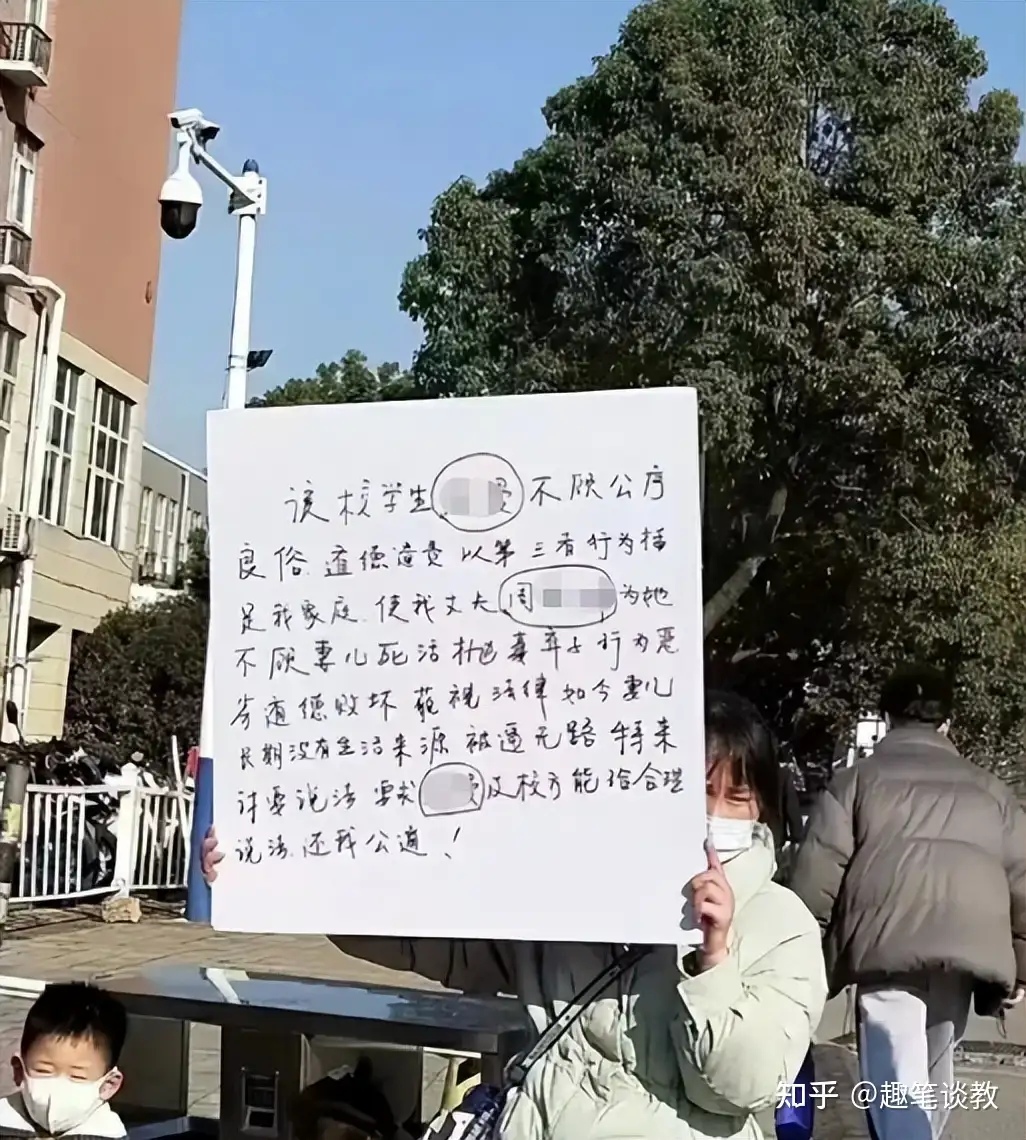 该校学生 不顾公序
良俗.道德遣责以第三者行为插
足我家庭.使我丈夫周 为她
不顾妻儿死活抛妻弃子行为恶
劣道德败坏藐视法律如今妻儿
长期没有生活来源被逼无路特来
讨要说法要求 及校方能给合理
说法.还我公道!
知乎 @趣笔谈教